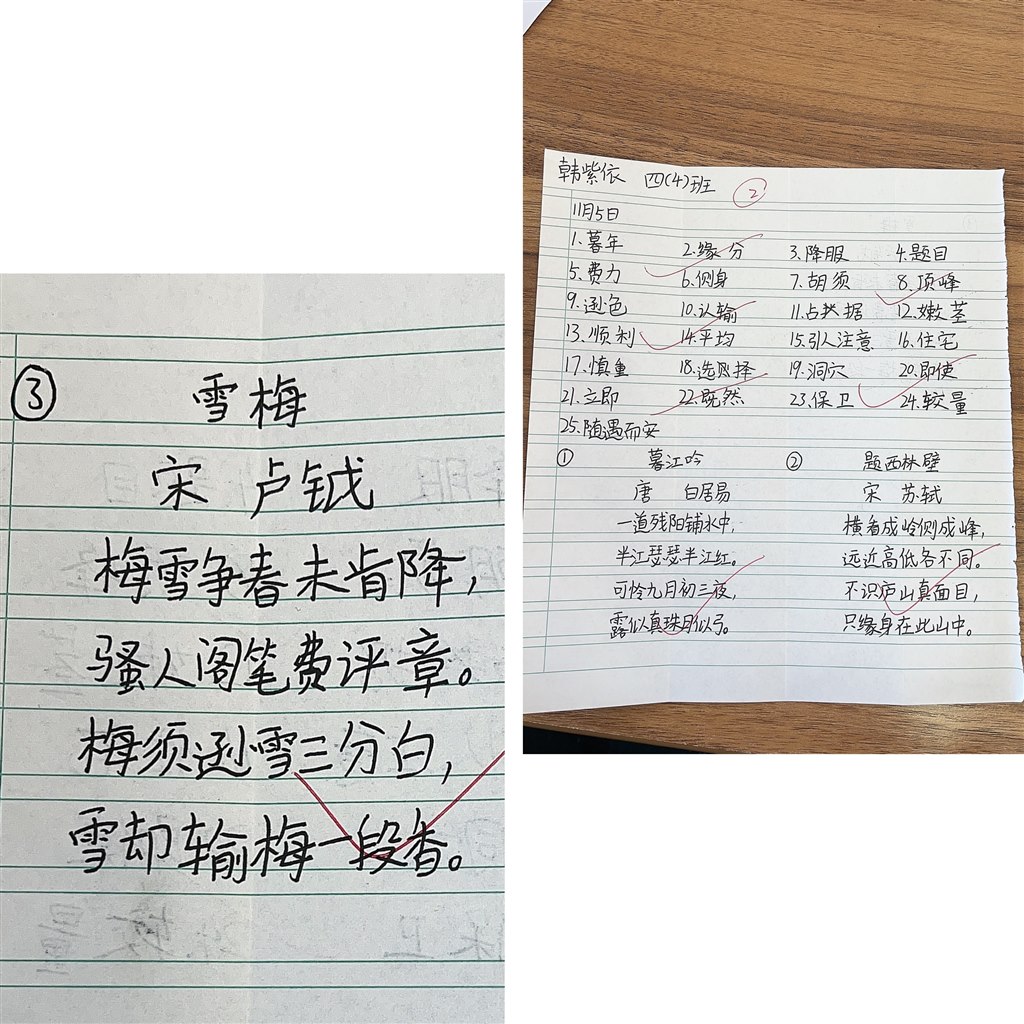 ③ 雪梅
宋 卢钺
梅雪争春未肯降，
骚人阁笔费评章。
梅须逊雪三分白，
雪却输梅一段香。
韩紫依 四(4)班 ②
11月5日
1.暮年 2.缘分 3.降服 4.题目
5.费力 6.侧身 7.胡须 8.顶峰
9.逊色 10.认输 11.占据 12.嫩茎
13.顺利 14.平均 15.引人注意 16.住宅
17.慎重 18.选择 19.洞穴 20.即使
21.立即 22.既然 23.保卫 24.较量
25.随遇而安
① 暮江吟 ② 题西林壁
唐 白居易 宋 苏轼
一道残阳铺水中， 横看成岭侧成峰，
半江瑟瑟半江红。 远近高低各不同。
可怜九月初三夜， 不识庐山真面目，
露似真珠月似弓。 只缘身在此山中。